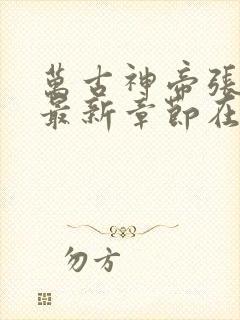 萬古神帝張
最新章節在
勿方